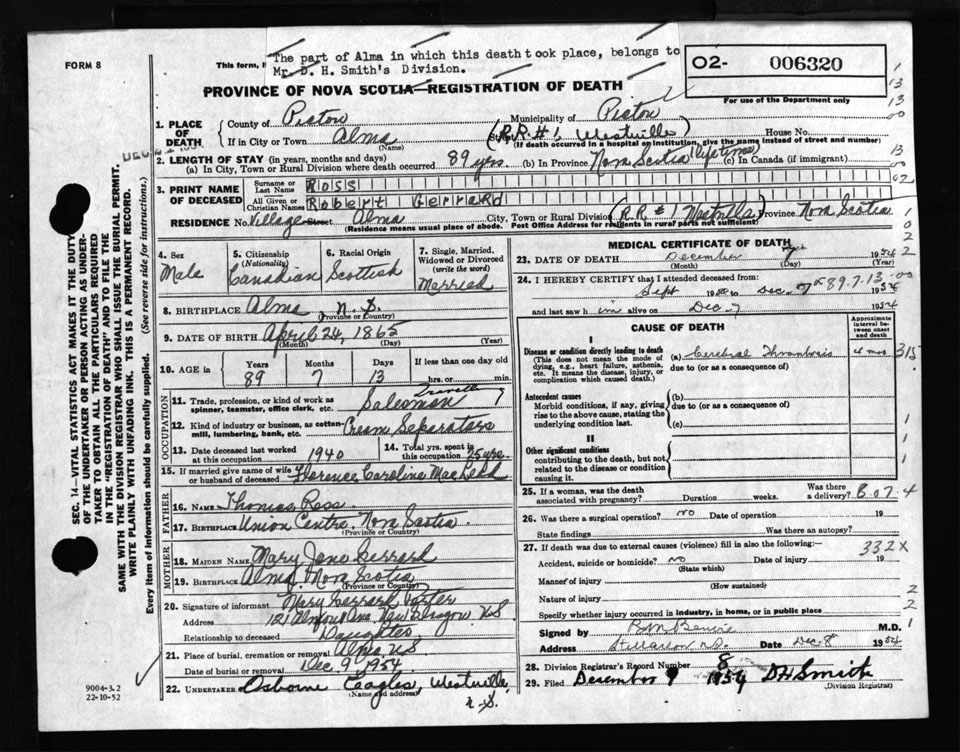 FORM 8
This form, i
The part of Alma in which this death took place, belongs to
Mr. D. H. Smith's Division.
02- 006320
For use of the Department only
PROVINCE OF NOVA SCOTIA—REGISTRATION OF DEATH
1. PLACE OF DEATH
County of Pictou Municipality of Pictou
If in City or Town Alma (Name) (R.R. #1, Westville) House No.
(If death occurred in a hospital or institution, give the name instead of street and number)
2. LENGTH OF STAY (in years, months and days)
(a) In City, Town or Rural Division where death occurred 89 yrs. (b) In Province Nova Scotia (lifetime) (c) In Canada (if immigrant)
3. PRINT NAME OF DECEASED
Surname or Last Name ROSS
All Given or Christian Names Robert Gerrard
RESIDENCE No. Village Street Alma City, Town or Rural Division (R.R #1 Westville) Province Nova Scotia
(Residence means usual place of abode. Post Office Address for residents in rural parts not sufficient)
4. Sex Male
5. Citizenship (Nationality) Canadian
6. Racial Origin Scottish
7. Single, Married, Widowed or Divorced (write the word) Married
8. BIRTHPLACE Alma N.S.
(Province or Country)
9. DATE OF BIRTH April 24, 1865
(Month) (Day) (Year)
10. AGE in Years Months Days If less than one day old
89 7 13 hrs. or min.
OCCUPATION
11. Trade, profession or kind of work as spinner, teamster, office clerk, etc. Travelling Salesman
12. Kind of industry or business, as cotton-mill, lumbering, bank, etc. Cream Separators
13. Date deceased last worked at this occupation 1940
14. Total yrs. spent in this occupation 25 yrs.
15. If married give name of wife or husband of deceased Florence Caroline MacLeod
FATHER
16. NAME Thomas Ross
17. BIRTHPLACE Union Centre, Nova Scotia
(Province or Country)
MOTHER
18. MAIDEN NAME Mary Jane Gerrard
19. BIRTHPLACE Alma Nova Scotia
(Province or Country)
20. Signature of informant Mary Gerrard Porter
Address New Glasgow N.S
Relationship to deceased Daughter
21. Place of burial, cremation or removal Alma N.S
Date of burial or removal Dec 9, 1954
22. UNDERTAKER Osborne Eagles, Westville,
(Name and address)
N.S.
MEDICAL CERTIFICATE OF DEATH
23. DATE OF DEATH December 7 1954
(Month) (Day) (Year)
24. I HEREBY CERTIFY that I attended deceased from:
Sept 19 to Dec. 7 1954
and last saw h im alive on Dec. 7 1954
89.7.13
CAUSE OF DEATH
Approximate interval between onset and death
I
Disease or condition directly leading to death
(This does not mean the mode of dying, e.g., heart failure, asthenia, etc. It means the disease, injury, or complication which caused death.)
(a) Cerebral Thrombosis 4 mos
due to (or as a consequence of)
Antecedent causes
Morbid conditions, if any, giving rise to the above cause, stating the underlying condition last.
(b)
due to (or as a consequence of)
(c)
II
Other significant conditions
contributing to the death, but not related to the disease or condition causing it.
25. If a woman, was the death associated with pregnancy? Duration weeks. Was there a delivery?
26. Was there a surgical operation? no Date of operation 19
State findings Was there an autopsy?
27. If death was due to external causes (violence) fill in also the following:— 332X
Accident, suicide or homicide? no Date of injury 19
(State which)
Manner of injury
(How sustained)
Nature of injury
Specify whether injury occurred in industry, in home, or in public place
Signed by M.D.
Address Stellarton N.S. Date Dec-8 1954
28. Division Registrar's Record Number 8
29. Filed December 9 1954 D H Smith
(Division Registrar)
SEC. 14—VITAL STATISTICS ACT MAKES IT THE DUTY
OF THE UNDERTAKER OR PERSON ACTING AS UNDER-
TAKER TO OBTAIN ALL THE PARTICULARS REQUIRED
IN THE "REGISTRATION OF DEATH" AND TO FILE THE
SAME WITH THE DIVISION REGISTRAR WHO SHALL ISSUE THE BURIAL PERMIT.
WRITE PLAINLY WITH UNFADING INK. THIS IS A PERMANENT RECORD.
Every item of information should be carefully supplied. (See reverse side for instructions.)
9004-3.2
22-10-52